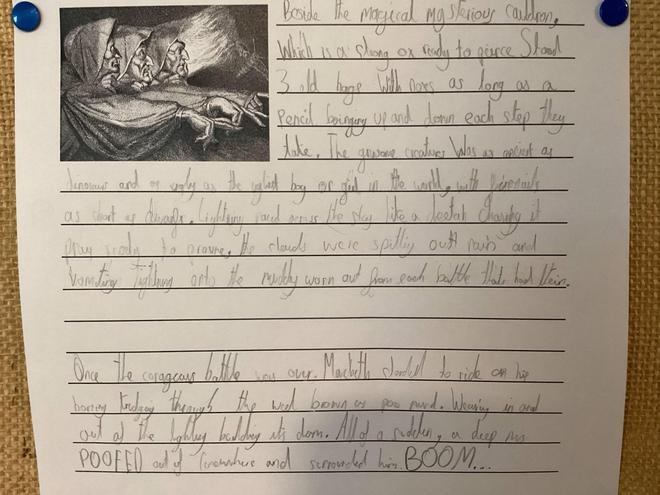 Beside the magical mysterious cauldron,
Which is a strong ox ready to pierce Stood
3 old hags With noses as long as a
Pencil boinging up and down each step they
take. The gruesome creatures Was as ancient as
dinosaurs and as ugly as the ugliest boy or girl in the world, with
as short as Lightning raced across the sky like a cheetah Chasing it
pray ready to the clouds were spitting outt rain and
Vomiting lightning onto the muddy worn out from each battle that had
Once the corageous battle was over. Macbeth started to ride on his
through the wet brown as poo mud. Weaving in and
out of the lighting its All of a sudden, a deep
POOFED out of and surrounded him. BOOM...